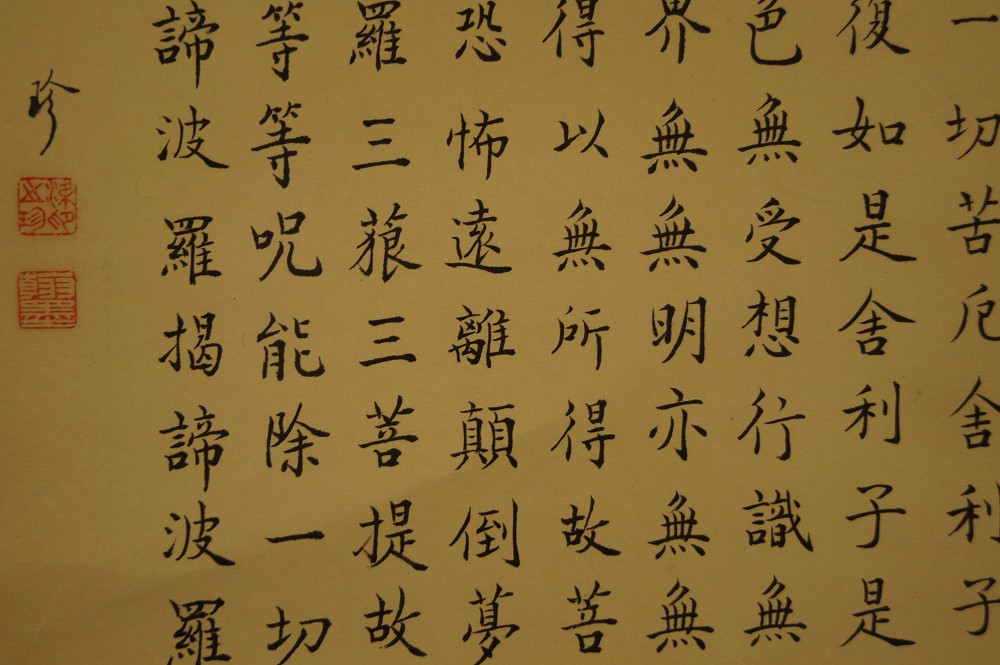 一切苦厄舍利子
復如是舍利子是
色無受想行識無
界無無明亦無無
得以無所得故菩
恐怖遠離顛倒夢
羅三藐三菩提故
等等呪能除一切
諦波羅揭諦波羅
珍